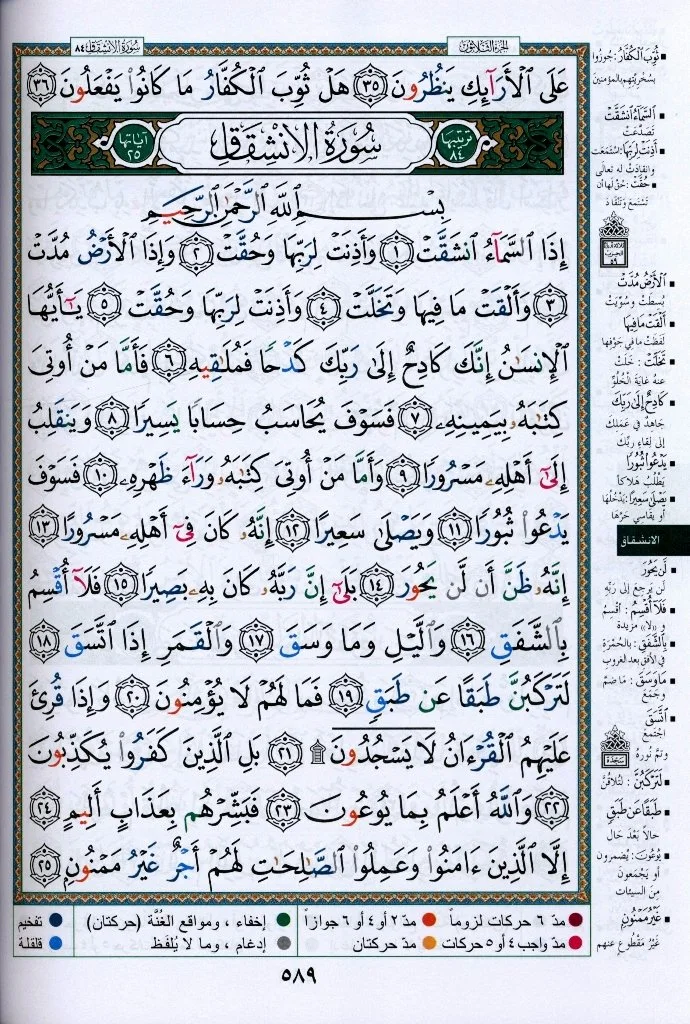 سُورَةُ الانْشِقَاق ٨٤
الجُزءُ الثَّلاثُون
عَلَى ٱلْأَرَآئِكِ يَنظُرُونَ ٣٥ هَلْ ثُوِّبَ ٱلْكُفَّارُ مَا كَانُوا۟ يَفْعَلُونَ ٣٦
ترتيبها ٨٤
سُورَةُ الانْشِقَاقِ
آياتها ٢٥
بِسْمِ ٱللَّهِ ٱلرَّحْمَٰنِ ٱلرَّحِيمِ
إِذَا ٱلسَّمَآءُ ٱنشَقَّتْ ١ وَأَذِنَتْ لِرَبِّهَا وَحُقَّتْ ٢ وَإِذَا ٱلْأَرْضُ مُدَّتْ
٣ وَأَلْقَتْ مَا فِيهَا وَتَخَلَّتْ ٤ وَأَذِنَتْ لِرَبِّهَا وَحُقَّتْ ٥ يَٰٓأَيُّهَا
ٱلْإِنسَٰنُ إِنَّكَ كَادِحٌ إِلَىٰ رَبِّكَ كَدْحًا فَمُلَٰقِيهِ ٦ فَأَمَّا مَنْ أُوتِىَ
كِتَٰبَهُۥ بِيَمِينِهِۦ ٧ فَسَوْفَ يُحَاسَبُ حِسَابًا يَسِيرًا ٨ وَيَنقَلِبُ
إِلَىٰٓ أَهْلِهِۦ مَسْرُورًا ٩ وَأَمَّا مَنْ أُوتِىَ كِتَٰبَهُۥ وَرَآءَ ظَهْرِهِۦ ١٠ فَسَوْفَ
يَدْعُوا۟ ثُبُورًا ١١ وَيَصْلَىٰ سَعِيرًا ١٢ إِنَّهُۥ كَانَ فِىٓ أَهْلِهِۦ مَسْرُورًا ١٣
إِنَّهُۥ ظَنَّ أَن لَّن يَحُورَ ١٤ بَلَىٰٓ إِنَّ رَبَّهُۥ كَانَ بِهِۦ بَصِيرًا ١٥ فَلَآ أُقْسِمُ
بِٱلشَّفَقِ ١٦ وَٱلَّيْلِ وَمَا وَسَقَ ١٧ وَٱلْقَمَرِ إِذَا ٱتَّسَقَ ١٨
لَتَرْكَبُنَّ طَبَقًا عَن طَبَقٍ ١٩ فَمَا لَهُمْ لَا يُؤْمِنُونَ ٢٠ وَإِذَا قُرِئَ
عَلَيْهِمُ ٱلْقُرْءَانُ لَا يَسْجُدُونَ ۩ ٢١ بَلِ ٱلَّذِينَ كَفَرُوا۟ يُكَذِّبُونَ
٢٢ وَٱللَّهُ أَعْلَمُ بِمَا يُوعُونَ ٢٣ فَبَشِّرْهُم بِعَذَابٍ أَلِيمٍ ٢٤
إِلَّا ٱلَّذِينَ ءَامَنُوا۟ وَعَمِلُوا۟ ٱلصَّٰلِحَٰتِ لَهُمْ أَجْرٌ غَيْرُ مَمْنُونٍ ٢٥
ثُوِّبَ الكُفَّارُ: جُوزُوا
بسُخريتِهم بالمؤمنين
السَّمَاءُ انشَقَّتْ
تَصَدَّعَتْ
أَذِنَتْ لِرَبِّهَا: اسْتَمَعَتْ
وانقادَتْ له تعالى
حُقَّتْ: حُقَّ لها أن
تَسْتَمِعَ وتَنْقَادَ
الحزب
٥٩
الأَرْضُ مُدَّتْ
بُسِطَتْ وسُوِّيَتْ
أَلْقَتْ مَا فِيهَا
لَفَظَتْ ما في جَوْفِها
تَخَلَّتْ: خَلَتْ
عنه غايَةَ الخُلُوِّ
كَادِحٌ إِلَى رَبِّكَ
جاهِدٌ في عَمَلِك
إلى لِقاءِ ربِّكَ
يَدْعُوا ثُبُورًا
يَطْلُبُ هَلاكاً
يَصْلَى سَعِيرًا: يَدْخُلُها
أو يقاسي حَرَّها
الانشقاق
لَن يَحُورَ
لن يرجِعَ إلى ربِّهِ
فَلَا أُقْسِمُ: أُقْسِمُ
و «لا» مزيدة
بِالشَّفَقِ: بالحُمْرَةِ
في الأفق بعد الغروب
مَا وَسَقَ: ما ضمَّ
وجَمَعَ
اتَّسَقَ
اجْتَمَعَ
وتَمَّ نورُهُ
سجدة
لَتَرْكَبُنَّ: لَتُلاقُنَّ
طَبَقًا عَن طَبَقٍ
حالاً بَعْدَ حَال
يُوعُونَ: يُضمِرون
أو يَجْمَعون
مِنَ السيئات
غَيْرُ مَمْنُونٍ
غَيْرُ مَقْطُوعٍ عنهم
مدّ ٦ حركات لزوماً
مدّ ٢ أو ٤ أو ٦ جوازاً
إخفاء، ومواقع الغُنَّة (حركتان)
تفخيم
مدّ واجب ٤ أو ٥ حركات
مدّ حركتان
إدغام، وما لا يُلفَظ
قلقلة
٥٨٩